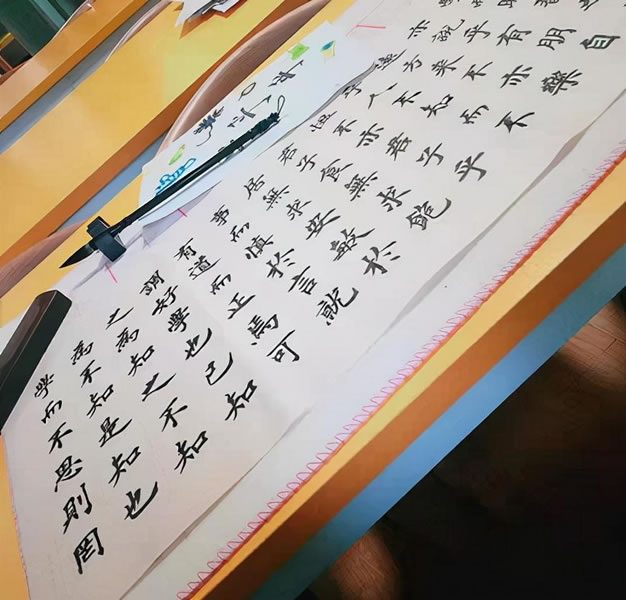 亦說乎有朋自
遠方來不亦樂
乎人不知而不
慍不亦君子乎
君子食無求飽
居無求安敏於
事而慎於言就
有道而正焉可
謂好學也已知
之為知之不知
為不知是知也
學而不思則罔